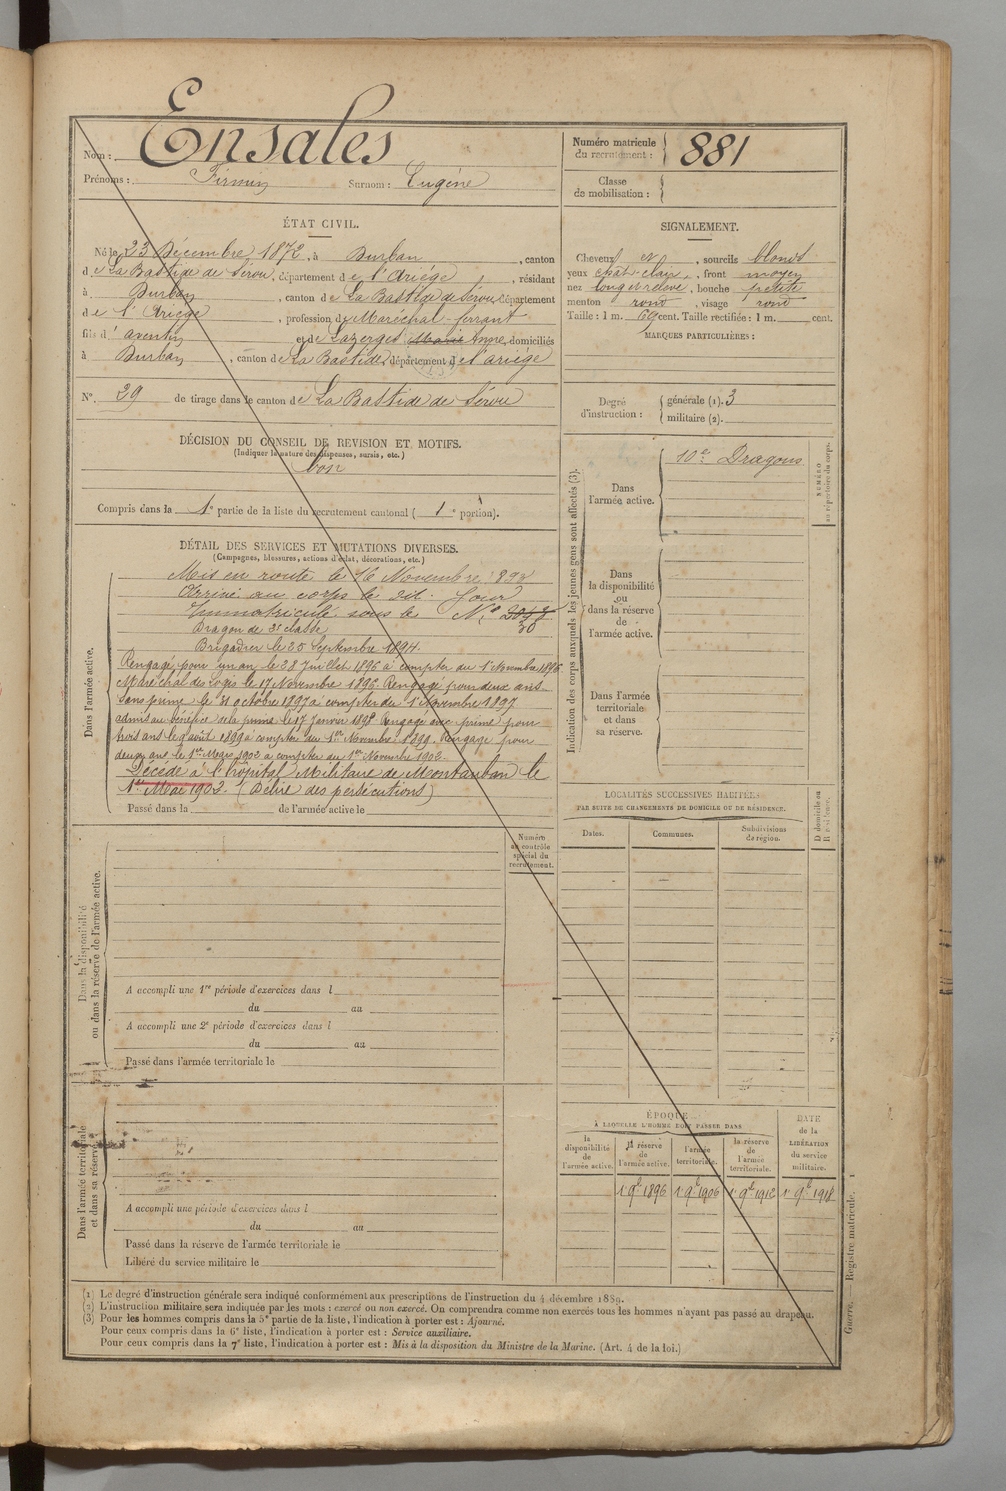 Nom : Ensales
Prénoms : Firmin Surnom : Eugène
Numéro matricule du recrutement : 881
Classe de mobilisation :
ÉTAT CIVIL.
Né le 23 Décembre 1872, à Durban, canton
de La Bastide de Sérou, département de l'Ariége, résidant
à Durban, canton de La Bastide de Sérou, département
de l'Ariège, profession de Maréchal-ferrant
fils d' aventin et de Lazerges Marie Anne, domiciliés
à Durban, canton de La Bastide, département de l'ariége
N°. 29 de tirage dans le canton de La Bastide de Sérou
SIGNALEMENT.
Cheveux et, sourcils blonds
yeux chat-clair, front moyen
nez long et relevé, bouche petite
menton rond, visage rond
Taille : 1 m. 69 cent. Taille rectifiée : 1 m. cent.
MARQUES PARTICULIÈRES :
Degré d'instruction : générale (1). 3
militaire (2).
DÉCISION DU CONSEIL DE REVISION ET MOTIFS.
(Indiquer la nature des dispenses, sursis, etc.)
bon
Compris dans la 1e partie de la liste du recrutement cantonal ( 1e portion).
DÉTAIL DES SERVICES ET MUTATIONS DIVERSES.
(Campagnes, blessures, actions d'éclat, décorations, etc.)
Dans l'armée active.
Mis en route le 16 Novembre 1893
Arrivé au corps le dit Jour
Immatriculé sous le N°
30
Dragon de 2e classe
Brigadier le 25 Septembre 1894.
Rengagé pour un an le 28 Juillet 1896 à compter du 1er Novembre 1896
Maréchal des logis le 17 Novembre 1896. Rengagé pour deux ans
sans prime le 31 octobre 1897 a compter du 1er Novembre 1897
admis au bénéfice de la prime le 17 Janvier 1898 Rengagé avec prime pour
trois ans le août 1899 à compter du 1er Novembre 1899. Rengagé pour
deux ans le 1er Mars 1902 a compter du 1er Novembre 1902.
Décédé à l'hôpital Militaire de Montauban le
1er Mai 1902. (Délire des persécutions)
Passé dans la de l'armée active le
Indication des corps auxquels les jeunes gens sont affectés (3).
Dans l'armée active.
10e Dragons
NUMÉRO au répertoire du corps.
Dans la disponibilité ou dans la réserve de l'armée active.
Dans l'armée territoriale et dans sa réserve.
LOCALITÉS SUCCESSIVES HABITÉES
PAR SUITE DE CHANGEMENTS DE DOMICILE OU DE RÉSIDENCE.
Dates. Communes. Subdivisions de région.
D domicile ou R résidence.
Numéro au contrôle spécial du recrutement.
Dans la disponibilité ou dans la réserve de l'armée active.
A accompli une 1re période d'exercices dans l
du au
A accompli une 2e période d'exercices dans l
du au
Passé dans l'armée territoriale le
Dans l'armée territoriale et dans sa réserve.
A accompli une période d'exercices dans l
du au
Passé dans la réserve de l'armée territoriale le
Libéré du service militaire le
ÉPOQUE
À LAQUELLE L'HOMME DOIT PASSER DANS
la disponibilité de l'armée active.
la réserve de l'armée active.
l'armée territoriale.
la réserve de l'armée territoriale.
DATE de la LIBÉRATION du service militaire.
1 9b 1896 1 9b 1906 1 9b 1912 1 9b 1918
(1) Le degré d'instruction générale sera indiqué conformément aux prescriptions de l'instruction du 4 décembre 1889.
(2) L'instruction militaire sera indiquée par les mots : exercé ou non exercé. On comprendra comme non exercés tous les hommes n'ayant pas passé au drapeau.
(3) Pour les hommes compris dans la 5e partie de la liste, l'indication à porter est : Ajourné.
Pour ceux compris dans la 6e liste, l'indication à porter est : Service auxiliaire.
Pour ceux compris dans la 7e liste, l'indication à porter est : Mis à la disposition du Ministre de la Marine. (Art. 4 de la loi.)
Guerre. — Registre matricule. 1